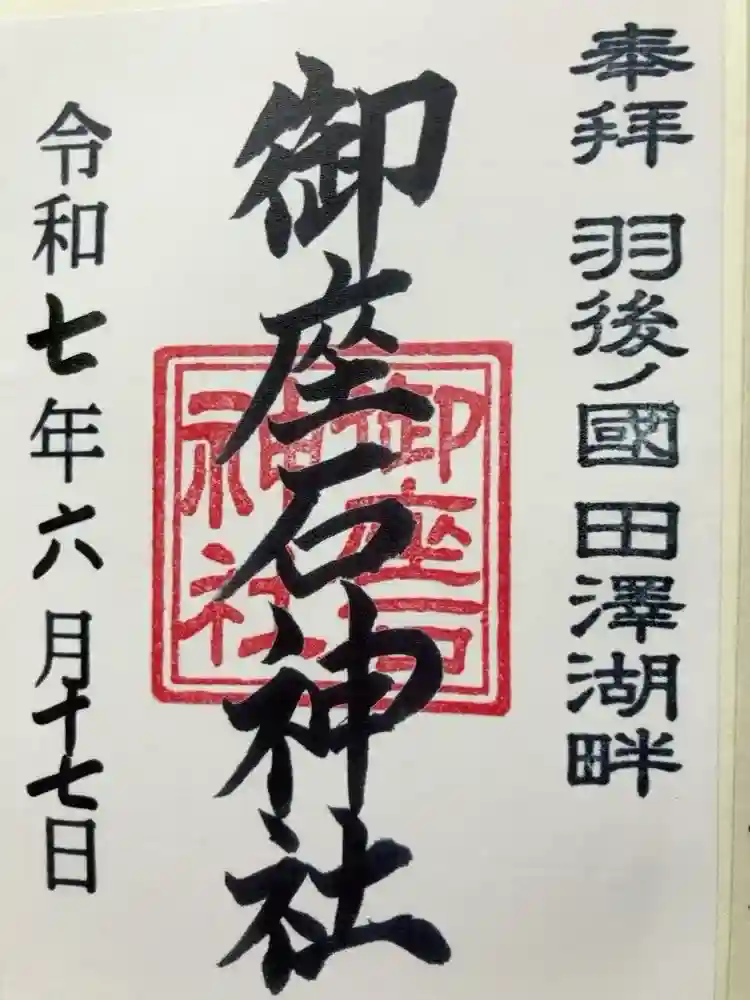 奉拝 羽後ノ國 田澤湖畔
御座石神社
御座石
神社
令和七年六月十七日